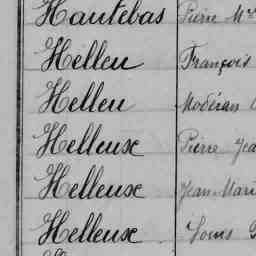 Hautebas Pierre M
Helleu François
Helleu Modéran
Helleuse Pierre Jea
Helleuse Jean Mari
Helleuse Louis